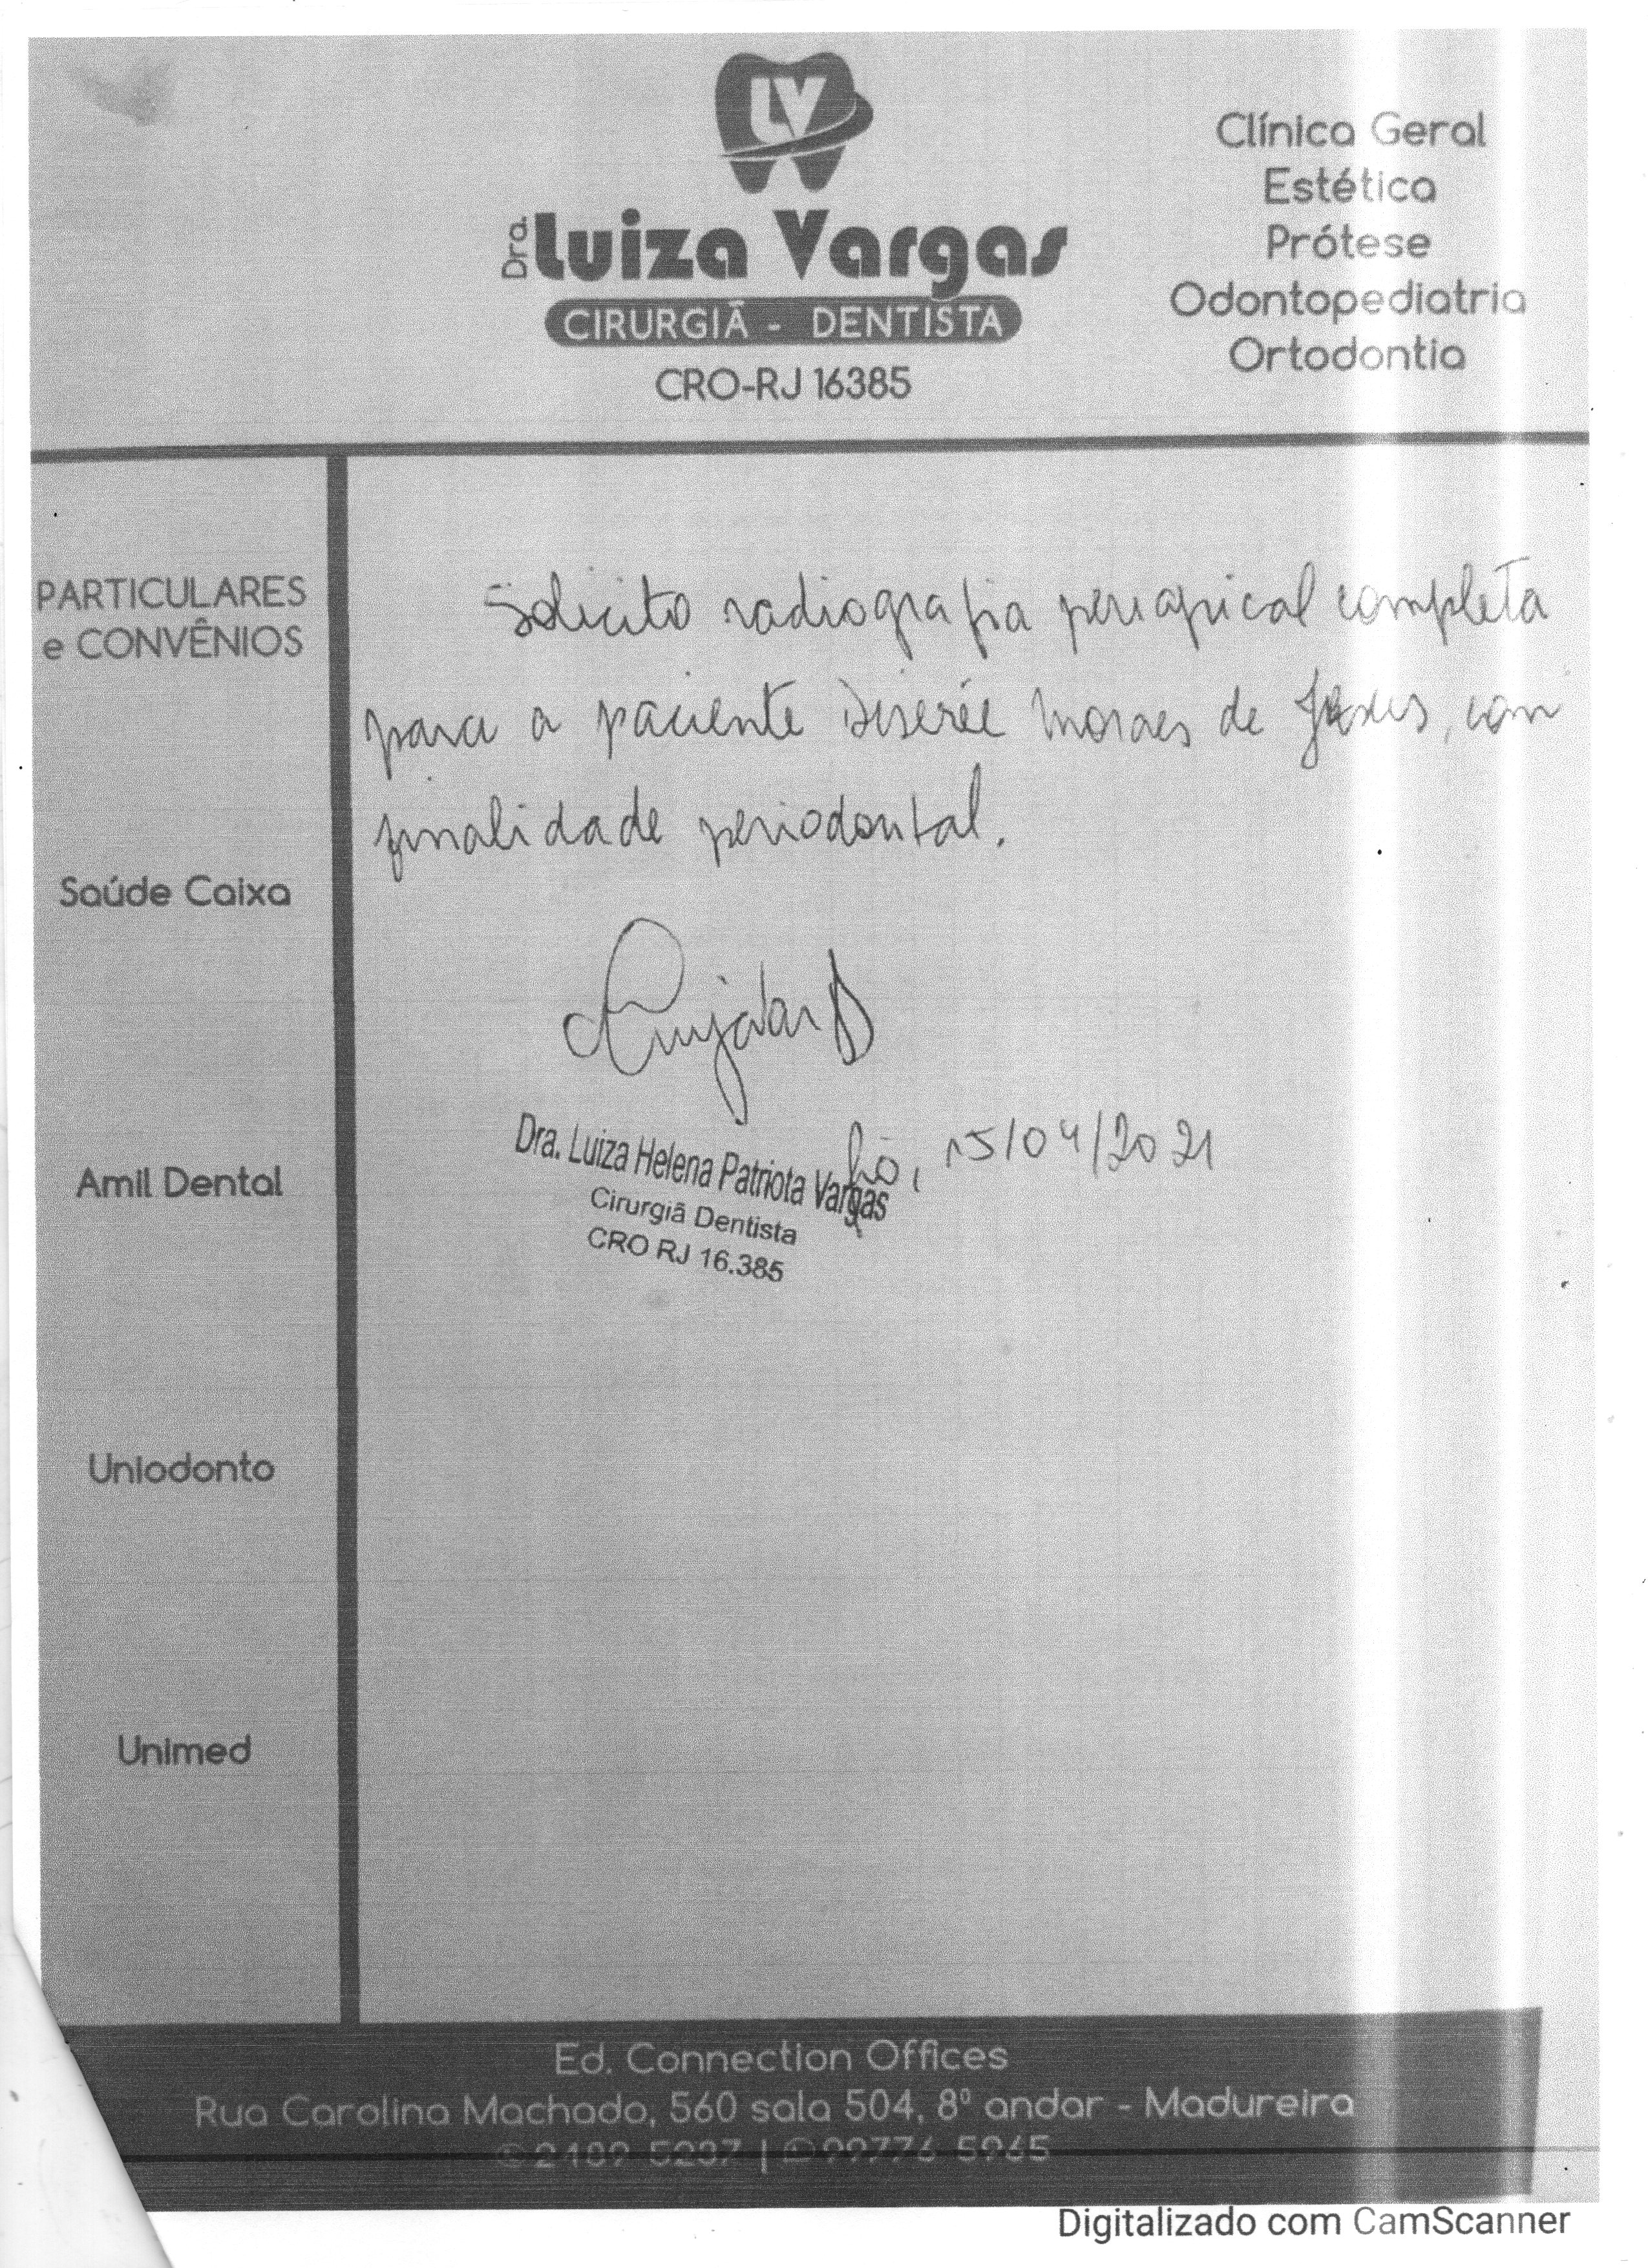 LV
Dra. Luiza Vargas
CIRURGIÃ - DENTISTA
CRO-RJ 16385
Clínica Geral
Estética
Prótese
Odontopediatria
Ortodontia
PARTICULARES
e CONVÊNIOS
Saúde Caixa
Amil Dental
Uniodonto
Unimed
Solicito radiografia periapical completa
para a paciente Diserée Moraes de Jesus, com
finalidade periodontal.
Dra. Luiza Helena Patriota Vargas
Cirurgiã Dentista
CRO RJ 16.385
15/04/2021
Ed. Connection Offices
Rua Carolina Machado, 560 sala 504, 8º andar - Madureira
2489 5237 | 99776 5965
Digitalizado com CamScanner